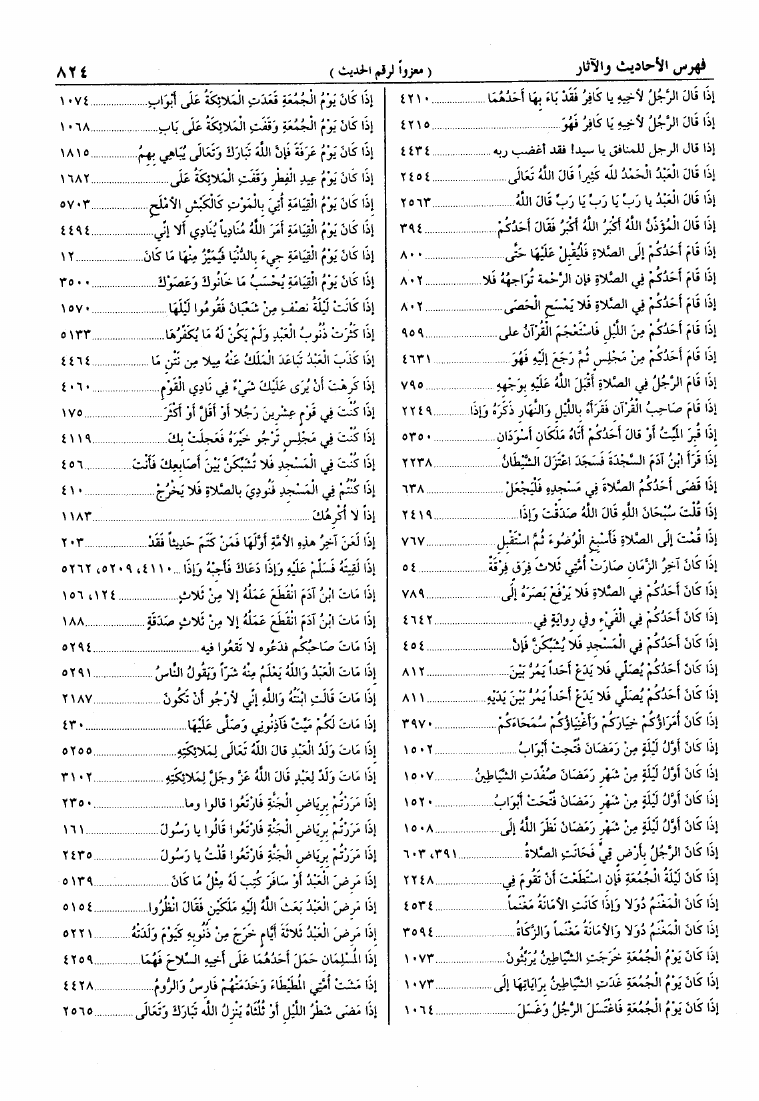 فهرس الأحاديث والآثار
( معزواً لرقم الحديث )
٨٢٤
إذَا قَالَ الرَّجُلُ لأخِيهِ يا كَافِرُ فَقَدْ بَاءَ بِهَا أَحَدُهُمَا ٤٢١٠
إذَا قَالَ الرَّجُلُ لأخِيهِ يَا كَافِرُ فَهُوَ ٤٢١٥
إذا قال الرجل للمنافق يا سيد! فقد أغضب ربه ٤٤٣٤
إذَا قَالَ الْعَبْدُ الْحَمْدُ لله كَثِيراً قَالَ اللَّهُ تَعَالَى ٢٤٥٤
إذَا قَالَ الْعَبْدُ يا رَبّ يَا رَبّ يَا رَبّ قَالَ اللَّهُ ٢٥٦٣
إذَا قَالَ الْمُؤَذِّنُ اللَّهُ أَكْبَرُ اللَّهُ أَكْبَرُ فَقَالَ أَحَدُكُمْ ٣٩٤
إذَا قَامَ أَحَدُكُمْ إلَى الصَّلاةِ فَلْيُقْبِلْ عَلَيْهَا حَتَّى ٨٠٠
إذَا قَامَ أَحَدُكُمْ فِي الصَّلاةِ فإن الرَّحْمة تُوَاجِهُهُ فَلا ٨٠٢
إذَا قَامَ أَحَدُكُمْ فِي الصَّلاةِ فَلا يَمْسَحِ الْحَصَى ٨٠٢
إذَا قَامَ أَحَدُكُمْ مِنَ اللَّيْلِ فَاسْتَعْجَمَ الْقُرْآنُ على ٩٥٩
إذَا قَامَ أَحَدُكُمْ مِنْ مَجْلِسٍ ثُمَّ رَجَعَ إلَيْهِ فَهُوَ ٤٦٣١
إذَا قَامَ الرَّجُلُ فِي الصَّلاةِ أَقْبَلَ اللَّهُ عَلَيْهِ بِوَجْهِهِ ٧٩٥
إذَا قَامَ صَاحِبُ الْقُرْآنِ فَقَرَأَهُ بِاللَّيْلِ وَالنَّهَارِ ذَكَرَهُ وَإذَا ٢٢٤٩
إذَا قُبِرَ الْمَيِّتُ أَوْ قالَ أَحَدُكُمْ أَتَاهُ مَلَكَانِ أَسْوَدَانِ ٥٣٥٠
إذَا قَرَأَ ابْنُ آدَمَ السَّجْدَةَ فَسَجَدَ اعْتَزَلَ الشَّيْطَانُ ٢٢٣٨
إذَا قَضَى أَحَدُكُمُ الصَّلاةَ فِي مَسْجِدِهِ فَلْيَجْعَلْ ٦٣٨
إذَا قُلْتَ سُبْحَانَ اللَّهِ قَالَ اللَّهُ صَدَقْتَ وَإذَا ٢٤١٩
إذَا قُمْتَ إلَى الصَّلاةِ فَأَسْبِغِ الْوُضُوءَ ثُمَّ اسْتَقْبِلِ ٧٦٧
إذَا كَانَ آخِرُ الزَّمَانِ صَارَتْ أُمَّتِي ثَلاثَ فِرَقٍ فِرْقَةٌ ٥٤
إذَا كَانَ أَحَدُكُمْ فِي الصَّلاةِ فَلا يَرْفَعْ بَصَرَهُ إلَى ٧٨٩
إذَا كَانَ أَحَدُكُمْ فِي الْفَيْءِ وفي روايةٍ فِي ٤٦٤٢
إذَا كَانَ أَحَدُكُمْ فِي الْمَسْجِدِ فَلا يُشَبِّكَنَّ فَإنَّ ٤٥٤
إذَا كَانَ أَحَدُكُمْ يُصَلِّي فَلا يَدَعْ أَحَداً يَمُرُّ بَيْنَ ٨١٢
إذَا كَانَ أَحَدُكُمْ يُصَلِّي فَلا يَدَعْ أَحَداً يَمُرُّ بَيْنَ يَدَيْهِ ٨١١
إذَا كَانَ أُمَرَاؤُكُمْ خِيَارَكُمْ وَأَغْنِيَاؤُكُمْ سُمَحَاءَكُمْ ٣٩٧٠
إذَا كَانَ أوَّلُ لَيْلَةٍ مِنْ رَمَضَانَ فُتِحَتْ أَبْوَابُ ١٥٠٢
إذَا كَانَ أوَّلُ لَيْلَةٍ مِنْ شَهْرِ رَمَضَانَ صُفِّدَتِ الشَّيَاطِينُ ١٥٠٧
إذَا كَانَ أوَّلُ لَيْلَةٍ مِنْ شَهْرِ رَمَضَانَ فُتِحَتْ أَبْوَابُ ١٥٢٠
إذَا كَانَ أوَّلُ لَيْلَةٍ مِنْ شَهْرِ رَمَضَانَ نَظَرَ اللَّهُ إلَى ١٥٠٨
إذَا كَانَ الرَّجُلُ بِأَرْضٍ قِيٍّ فَحَانَتِ الصَّلاةُ ٣٩١، ٦٠٣
إذَا كَانَ لَيْلَةُ الْجُمُعَةِ فَإِنِ اسْتَطَعْتَ أَنْ تَقُومَ فِي ٢٢٤٨
إذَا كَانَ الْمَغْنَمُ دُوَلا وَإذَا كَانَتِ الأمَانَةُ مَغْنَماً ٤٥٣٤
إذَا كَانَ الْمَغْنَمُ دُوَلا وَالأمَانَةُ مَغْنَماً وَالزَّكَاةُ ٣٥٩٤
إذَا كَانَ يَوْمُ الْجُمُعَةِ خَرَجَتِ الشَّيَاطِينُ يُرَيِّثُونَ ١٠٧٣
إذَا كَانَ يَوْمُ الْجُمُعَةِ غَدَتِ الشَّيَاطِينُ بِرَايَاتِهَا إلَى ١٠٧٣
إذَا كَانَ يَوْمُ الْجُمُعَةِ فَاغْتَسَلَ الرَّجُلُ وَغَسَلَ ١٠٦٤
إذَا كَانَ يَوْمُ الْجُمُعَةِ قَعَدَتِ الْمَلائِكَةُ عَلَى أَبْوَابِ ١٠٧٤
إذَا كَانَ يَوْمُ الْجُمُعَةِ وَقَفَتِ الْمَلائِكَةُ عَلَى بَابِ ١٠٦٨
إذَا كَانَ يَوْمُ عَرَفَةَ فَإنَّ اللَّهَ تَبَارَكَ وَتَعَالَى يُبَاهِي بِهِمُ ١٨١٥
إذَا كَانَ يَوْمُ عِيدِ الْفِطْرِ وَقَفَتِ الْمَلائِكَةُ عَلَى ١٦٨٢
إذَا كَانَ يَوْمُ الْقِيَامَةِ أُتِيَ بِالْمَوْتِ كَالْكَبْشِ الأمْلَحِ ٥٧٠٣
إذَا كَانَ يَوْمُ الْقِيَامَةِ أَمَرَ اللَّهُ مُنَادِياً يُنَادِي أَلا إنِّي ٤٤٩٤
إذَا كَانَ يَوْمُ الْقِيَامَةِ جِيءَ بِالدُّنْيَا فَيُمَيَّزُ مِنْهَا مَا كَانَ ١٢
إذَا كَانَ يَوْمُ الْقِيَامَةِ يُحْسَبُ مَا خَانُوكَ وَعَصَوْكَ ٣٥٠٠
إذَا كَانَتْ لَيْلَةُ نصْفِ مِنْ شَعْبَانَ فَقُومُوا لَيْلَهَا ١٥٧٠
إذَا كَثُرَتْ ذُنُوبُ الْعَبْدِ وَلَمْ يَكُنْ لَهُ مَا يُكَفِّرُهَا ٥١٣٣
إذَا كَذَبَ الْعَبْدُ تَبَاعَدَ الْمَلَكُ عَنْهُ مِيلا مِن نَتْنِ مَا ٤٤٦٤
إذَا كَرِهتَ أَنْ يُرَى عَلَيْكَ شَيْءٌ فِي نَادِي الْقَوْمِ ٤٠٦٠
إذَا كُنْتَ فِي قَوْمٍ عِشْرِينَ رَجُلا أَوْ أَقَلَّ أَوْ أَكْثَرَ ١٧٥
إذَا كُنتَ فِي مَجْلِسٍ تَرْجُو خَيْرَهُ فَعَجِلَتْ بِكَ ٤١١٩
إذَا كُنْتَ فِي الْمَسْجِدِ فَلا تُشَبِّكَنَّ بَيْنَ أَصَابِعِكَ فَأَنْتَ ٤٥٦
إذَا كُنْتُمْ فِي الْمَسْجِدِ فَنُودِيَ بِالصَّلاةِ فَلا يَخْرُجْ ٤١٠
إذاً لا أُكْرِهُكَ ١١٨٣
إذَا لَعَنَ آخِرُ هذِهِ الأمَّةِ أَوَّلَهَا فَمَنْ كَتَمَ حَدِيثاً فَقَدْ ٢٠٣
إذَا لَقِيتَهُ فَسَلِّمْ عَلَيْهِ وَإذَا دَعَاكَ فَأَجِبْهُ وَإذَا ٤١١٠، ٥٢٠٩، ٥٢٦٢
إذَا مَاتَ ابْنُ آدَمَ انْقَطَعَ عَمَلُهُ إلا مِنْ ثَلاثٍ ١٢٤، ١٥٦
إذَا مَاتَ ابْنُ آدَمَ انْقَطَعَ عَمَلُهُ إلا مِنْ ثَلاثٍ صَدَقَةٍ ١٨٨
إذَا مَاتَ صَاحبُكُم فدَعُوه لا تَقعُوا فيه ٥٢٩٤
إذَا مَاتَ الْعَبْدُ وَاللَّهُ يَعْلَمُ مِنْهُ شَرّاً وَيَقُولُ النَّاسُ ٥٢٩١
إذَا مَاتَ قَالَتِ ابْنَتُهُ وَاللَّهِ إنِّي لأرْجُو أَنْ تَكُونَ ٢١٨٧
إذَا مَاتَ لَكُمْ مَيِّتٌ فَآذِنُونِي وَصَلَّى عَلَيْهَا ٤٣٠
إذَا مَاتَ وَلَدُ الْعَبْدِ قالَ اللَّهُ تَعَالَى لِمَلائِكَتِهِ ٥٢٥٥
إذَا مَاتَ وَلَدٌ لِعَبْدٍ قَالَ اللَّهُ عَزَّ وَجَلَّ لِمَلائِكَتِهِ ٣١٠٢
إذَا مَرَرْتُمْ بِرِيَاضِ الْجَنَّةِ فَارْتَعُوا قالوا وما ٢٣٥٠
إذَا مَرَرْتُمْ بِرِيَاضِ الْجَنَّةِ فَارْتَعُوا قَالُوا يا رَسُولَ ١٦١
إذَا مَرَرْتُمْ بِرِيَاضِ الْجَنَّةِ فَارْتَعُوا قُلْتُ يا رَسُولَ ٢٤٣٥
إذَا مَرِضَ الْعَبْدُ أَوْ سَافَرَ كُتِبَ لَهُ مِثْلُ مَا كَانَ ٥١٣٩
إذَا مَرِضَ الْعَبْدُ بَعَثَ اللَّهُ إلَيْهِ مَلَكَيْنِ فَقَالَ انْظُرُوا ٥١٥٤
إذَا مَرِضَ الْعَبْدُ ثَلاثَةَ أَيَّامٍ خَرَجَ مِنْ ذُنُوبِهِ كَيَوْمَ وَلَدَتْهُ ٥٢٢١
إذَا الْمُسْلِمَانِ حَمَلَ أَحَدُهُمَا عَلَى أَخِيهِ السِّلاحَ فَهُمَا ٤٢٥٩
إذَا مَشَتْ أُمَّتِي الْمُطَيْطَاءَ وَخَدَمَتْهُمْ فَارِسُ وَالرُّومُ ٤٤٢٨
إذَا مَضَى شَطْرُ اللَّيْلِ أَوْ ثُلُثَاهُ يَنْزِلُ اللَّه تَبَارَكَ وَتَعَالَى ٢٥٦٥